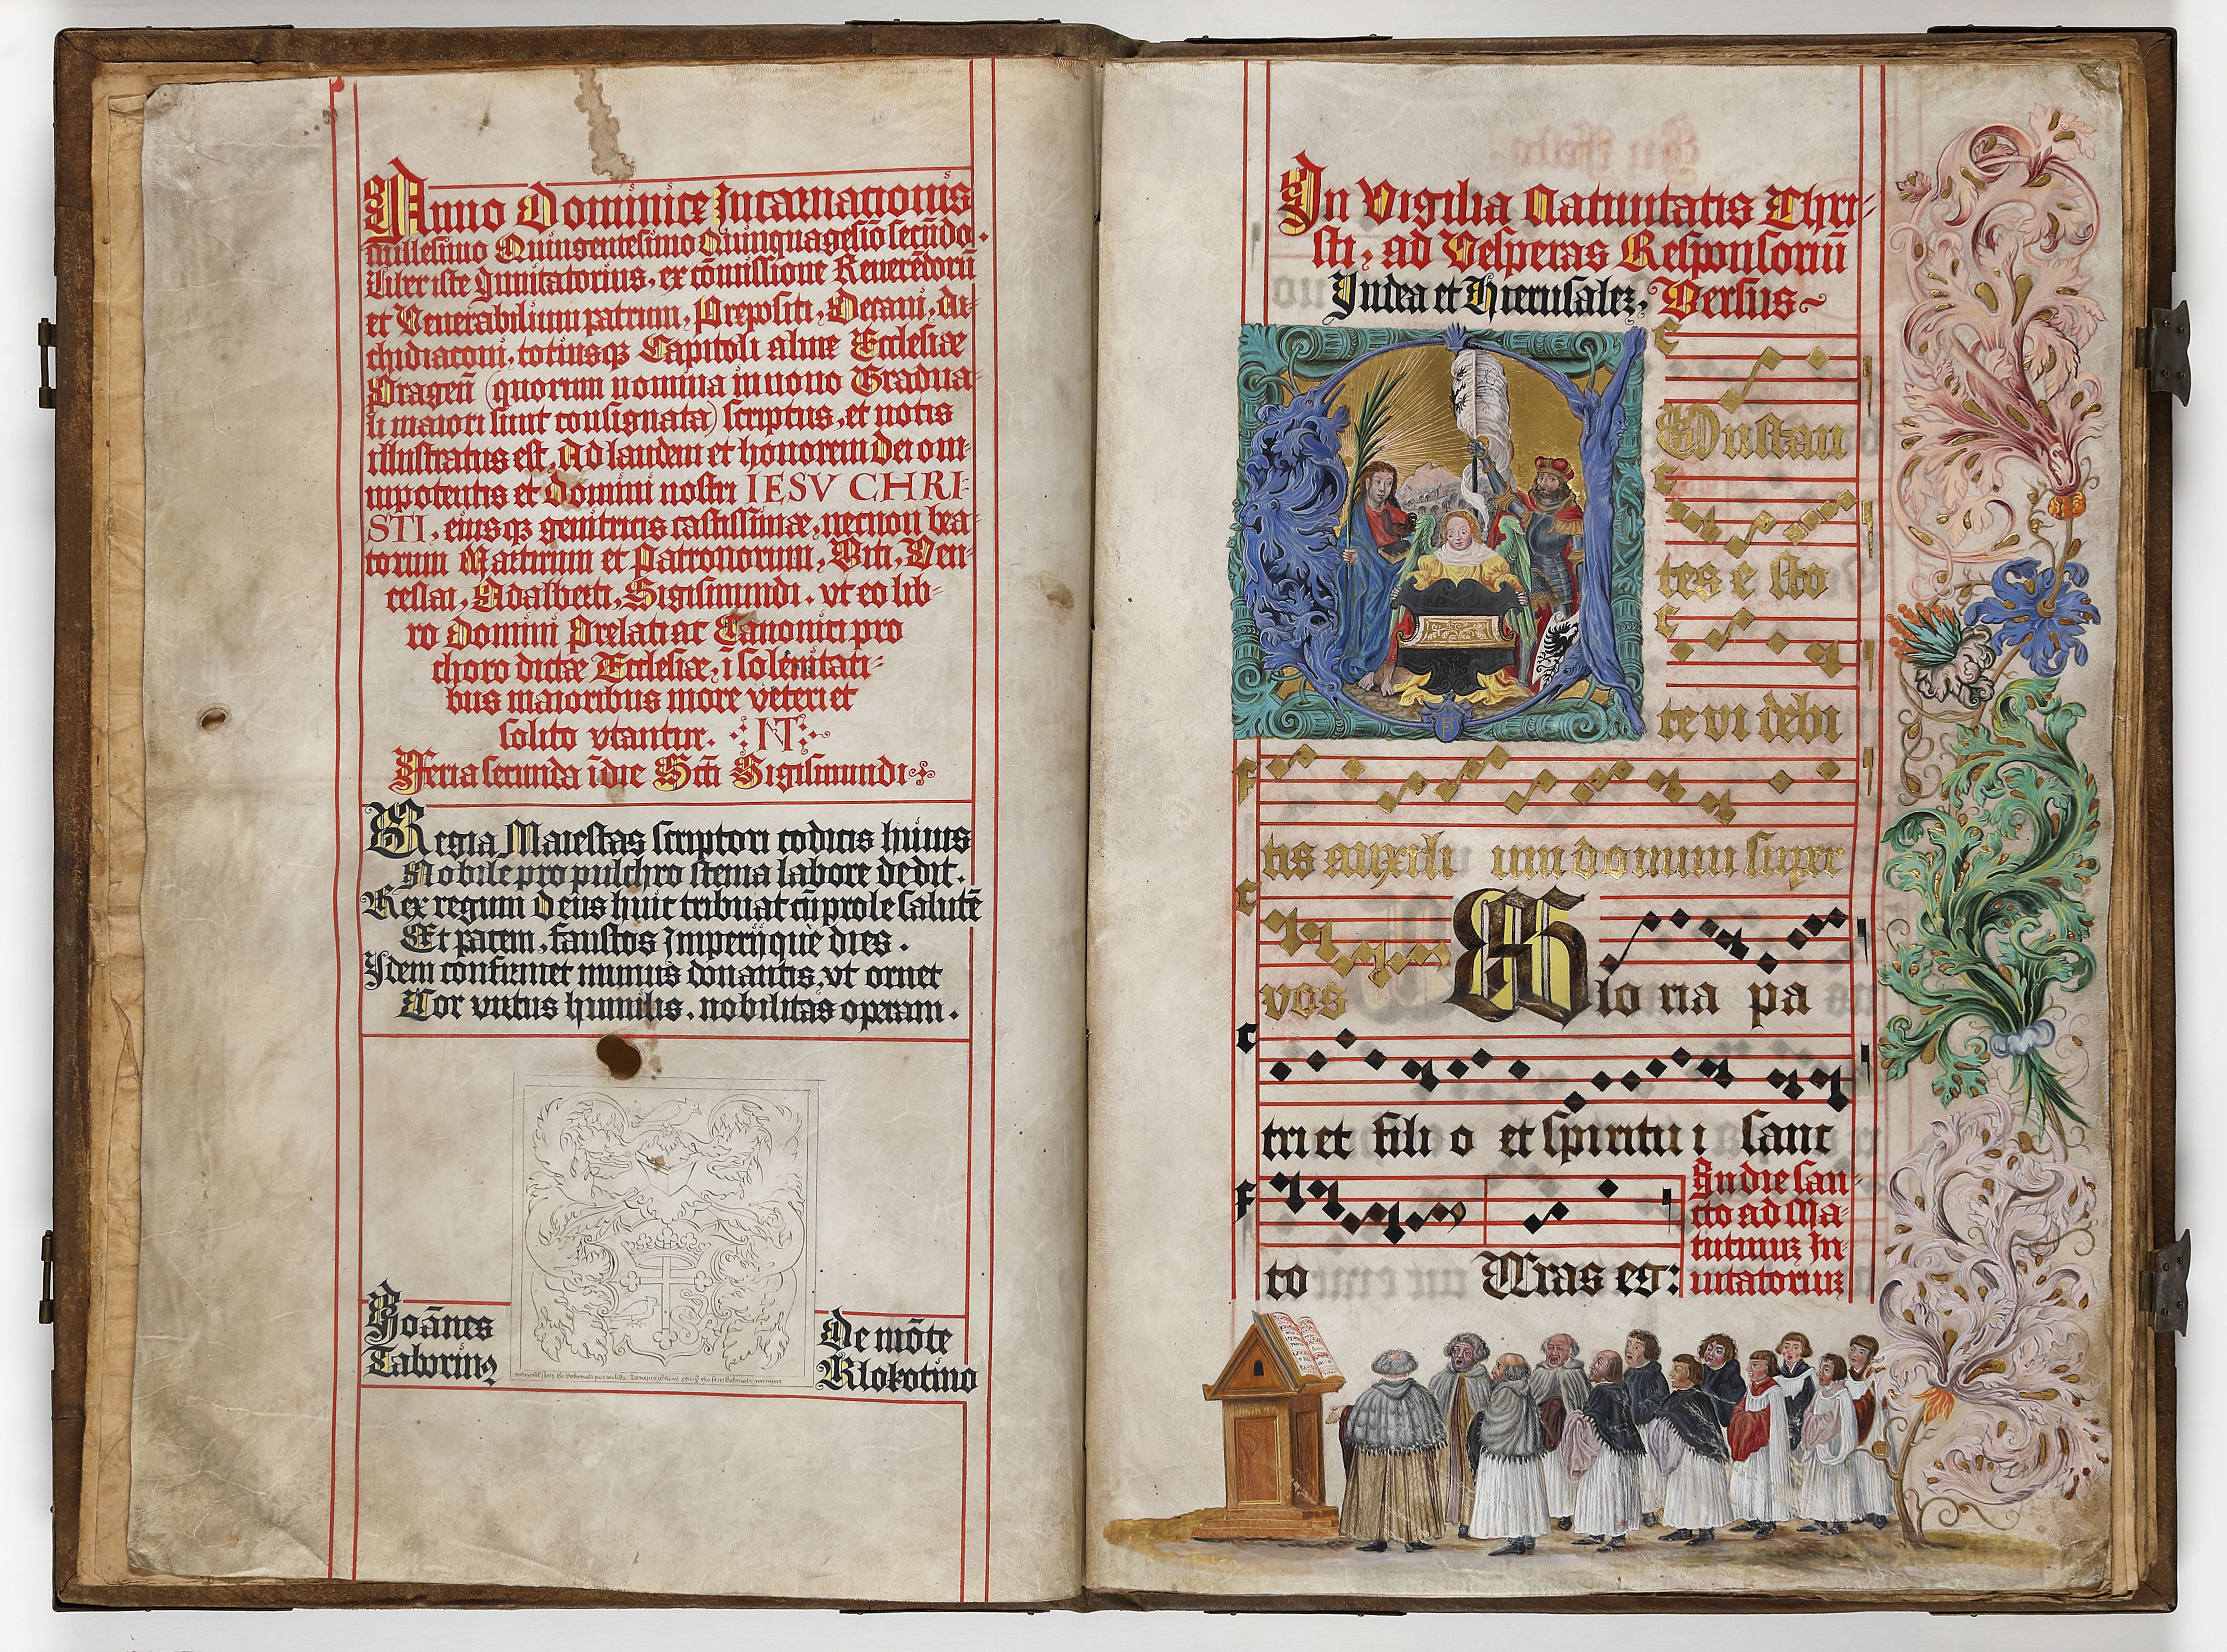 Anno Dominice Incarnationis
millesimo Quingentesimo Quinquagesio secũdo.
Liber iste Inuitatorius, ex cõmissione Reuerẽdorũ
et Venerabilium patrum, Prepositi, Decani, Ar-
chidiaconi, totiusqz Capitoli alme Ecclesiæ
Pragen̄ (quorum nomina in nouo Gradua-
li maiori sunt consignata) scriptus, et notis
illustratus est, Ad laudem et honorem dei om-
nipotentis et domini nostri IESV CHRI-
STI, eiusqz genitricis castissimæ, necnon bea-
torum Martirum et Patronorum, Viti, Ven-
ceslai, Adalberti, Sigismundi. vt eo lib-
ro domini Prelati ac Canonici pro
choro dictæ Ecclesiæ, ĩ solẽnitati-
bus maioribus more veteri et
solito vtantur. NT
Feria secunda ĩ die Scti Sigismundi
Regia Maiestas scriptori codicis huius
Nobile pro pulchro stema labore dedit.
Rex regum deus huic tribuat cũ prole salutẽ
Et pacem, faustos Imperijque dies.
Idem confirmet munus donantis, vt ornet
Cor virtus humilis, nobilitas operam.
Joãnes
Taborinꝰ
De mõte
Klokotino
In Vigilia Natiuitatis Chri-
sti, ad Vesperas Responsoriũ
Iudea et Hierusalez, Versus
Onstan
tes e sto
te vi debi
tis auxili um domini super
vos Glo ria pa
tri et fili o et spiritu i sanc
to Cras er:
In die san-
cto ad Ma-
tutinuz In-
uitatoriuz